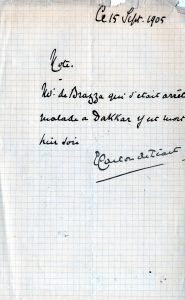 Ce 15 Sept. 1905
Note.
Mr. de Brazza qui s'était arrêté
malade à Dakkar y est mort
hier soir